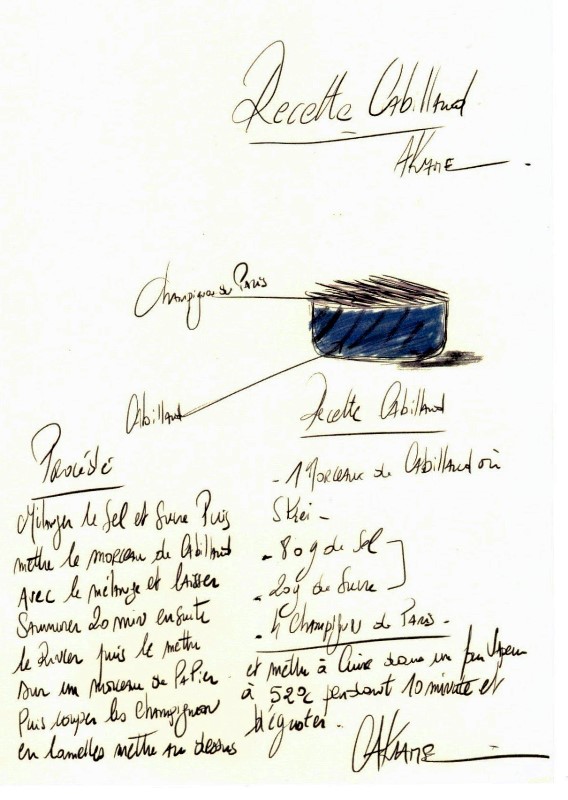 Recette Cabillaud
AKAME
Champignon de Paris
Cabillaud
Recette Cabillaud
- 1 Morceau de Cabillaud où
Skrei -
- 80g de Sel
- 20g de Sucre
- 4 Champignon de Paris -
Procédé
Mélanger le Sel et Sucre Puis
mettre le morceau de Cabillaud
Avec le mélange et laisser
Saumurer 20 min ensuite
le Rincer puis le mettre
sur un morceau de PaPier
Puis couper les Champignon
en lamelles mettre au dessus
et mettre à Cuire dans un four Vapeur
à 52°c pendant 10 minute et
déguster.
AKAME